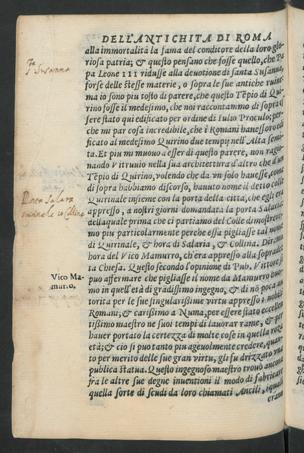 DELL'ANTICHITA DI ROMA
alla immortalità la fama del conditore della loro glo-
riosa patria; & questo pensano che fosse quello, che Pa
pa Leone III ridusse alla deuotione di santa Susanna,
forse delle stesse materie, o sopra le sue antiche ruine,
ma io sono piu tosto di parere, che questo Tẽpio di Qui-
rino fosse il medesimo, che noi raccontammo di sopra es
sere stato qui edificato per ordine di Iulio Proculo; per-
che mi par cosa incredibile, che i Romani hauessero edi-
ficato al medesimo Quirino due tempij nell'Alta semi-
ta. Et piu mi muouo a esser di questo parere, non
Vitruuio nella sua architettura d'altro che d'un
Tẽpio di Quirino, volendo che da vn solo
di sopra habbiamo discorso, hauuto nome il detto colle
Quirinale insieme con la porta della città, che egli era
appresso, a nostri giorni domandata la porta Salaria
dellaquale prima che ci partiamo del Colle dimostrere
mo piu particolarmente perche essa pigliasse tal nome
di Quirinale, & hora di Salaria, & Collina. Diremo
hora del Vico Mamurro, ch'era appresso alla sopradet
ta Chiesa. Questo secondo l'opinione di Pub. Vittore si
Vico Ma-
murro.
puo affermare che pigliasse il nome da Mamurro huo-
mo in quell'età di gradissimo ingegno, & di nõ poca au
torita per le sue singularissime virtu appresso i nobili
Romani; & carissimo a Numa, per essere stato eccellen-
tissimo maestro ne suoi tempi di lauorar rame, & per
hauer portato la certezza di molte cose in quella roza
età; & ciò si può tanto piu ageuolmente credere, quan-
to per merito delle sue gran virtu, gli fu drizzato vna
publica statua. Questo ingegnoso maestro trouò ancora
fra le altre sue degne inuentioni il modo di fabricare
quella sorte di scudi da loro chiamati Ancili, iquali
erano